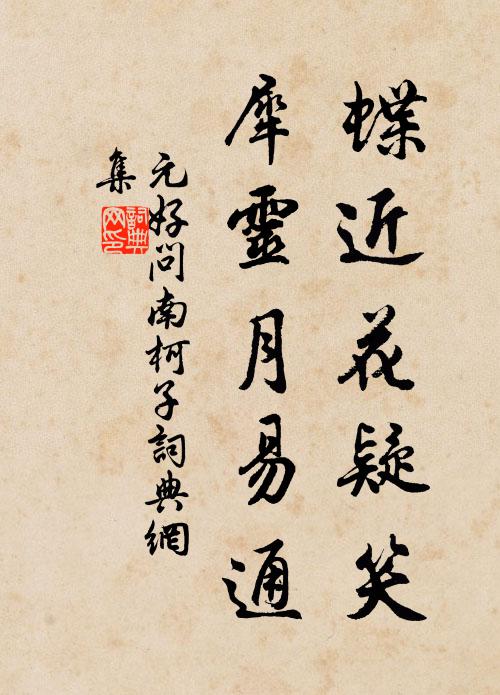 蝶近花疑笑
犀靈月易通
元好问南柯子詞典網
集
詞典
网印